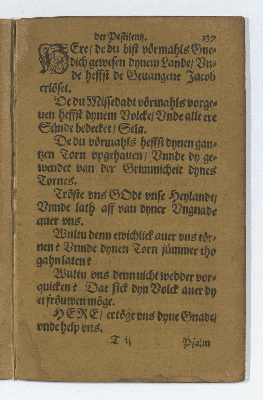 der Pestilentz. 137
HEre / de du bist vörmahls Gne-
dich gewesen dynem Lande / Vn-
de heffst de Geuangene Jacob
erlöset.
De du Missedadt vörmahls vorge-
uen heffst dynem Volcke / Vnde alle ere
Sünde bedecket / Sela.
De du vörmahls heffst dynen gan-
tzen Torn vpgehauen / Vnnde dy ge-
wendet van der Grimmicheit dynes
Tornes.
Tröste vns GOdt vnse Heylandt /
Vnnde lath aff van dyner Vngnade
auer vns.
Wultu denn ewichlick auer vns tör-
nen? Vnnde dynen Torn jümmer tho
gahn laten?
Wultu vns denn nicht wedder vor-
quicken? Dat sick dyn Volck auer dy
erfröuwen möge.
HERE / ertöge vns dyne Gnade /
vnde help vns.
T ij Psalm